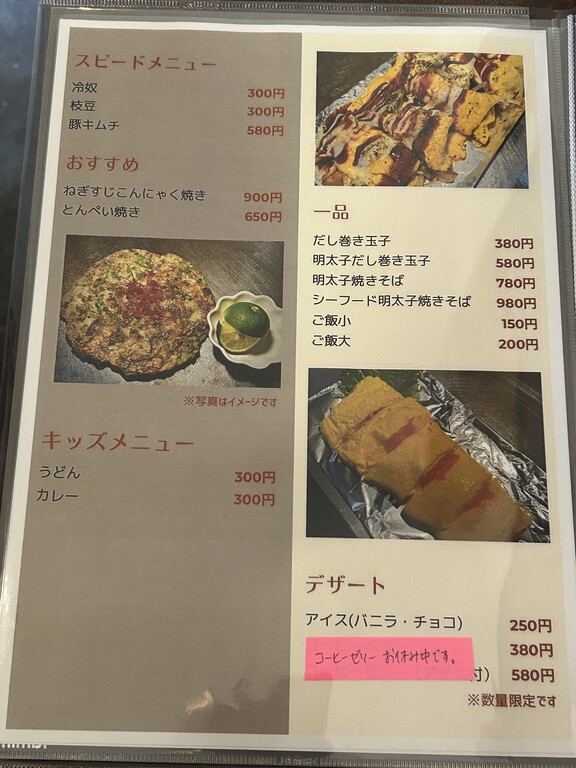 スピードメニュー
冷奴 300円
枝豆 300円
豚キムチ 580円
おすすめ
ねぎすじこんにゃく焼き 900円
とんぺい焼き 650円
※写真はイメージです
キッズメニュー
うどん 300円
カレー 300円
一品
だし巻き玉子 380円
明太子だし巻き玉子 580円
明太子焼きそば 780円
シーフード明太子焼きそば 980円
ご飯小 150円
ご飯大 200円
デザート
アイス(バニラ・チョコ) 250円
380円
コーヒーゼリー お休み中です。
付) 580円
※数量限定です